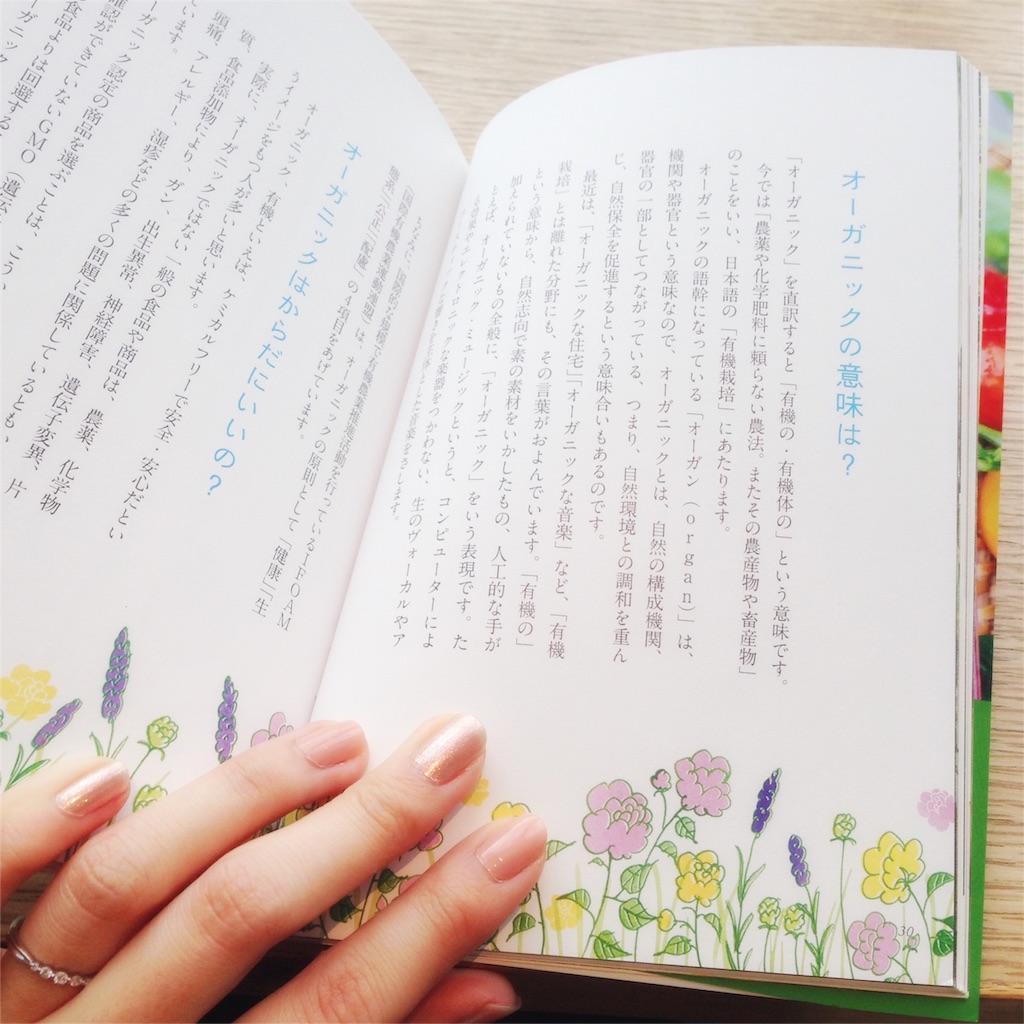 オーガニックの意味は？
「オーガニック」を直訳すると「有機の・有機体の」という意味です。
今では「農薬や化学肥料に頼らない農法。またその農産物や畜産物」
のことをいい、日本語の「有機栽培」にあたります。
オーガニックの語幹になっている「オーガン（organ）」は、
機関や器官という意味なので、オーガニックとは、自然の構成機関、
器官の一部としてつながっている、つまり、自然環境との調和を重ん
じ、自然保全を促進するという意味合いもあるのです。
最近は、「オーガニックな住宅」「オーガニックな音楽」など、「有機
栽培」とは離れた分野にも、その言葉がおよんでいます。「有機の」
という意味から、自然志向で素の素材をいかしたもの、人工的な手が
加えられていないもの全般に、「オーガニック」をいう表現です。た
とえば、オーガニック・ミュージックというと、コンピューターによ
る音楽やエレクトロニックな楽器をつかわない、生のヴォーカルやア
音楽をさします。
30
ちなみに、国際的な規模で有機農業推進活動を行っているIFOAM
（国際有機農業運動連盟）は、オーガニックの原則として「健康」「生
態系」「公正」「配慮」の4項目をあげています。
オーガニックはからだにいいの？
オーガニック、有機といえば、ケミカルフリーで安全・安心だとい
うイメージをもつ人が多いと思います。
実際に、オーガニックではない一般の食品や商品は、農薬、化学物
質、食品添加物により、ガン、出生異常、神経障害、遺伝子変異、片
頭痛、アレルギー、湿疹などの多くの問題に関係しているとも、
います。
ーガニック認定の商品を選ぶことは、こう
確認ができていないGMO（遺伝
食品よりは回避する
ーガニック